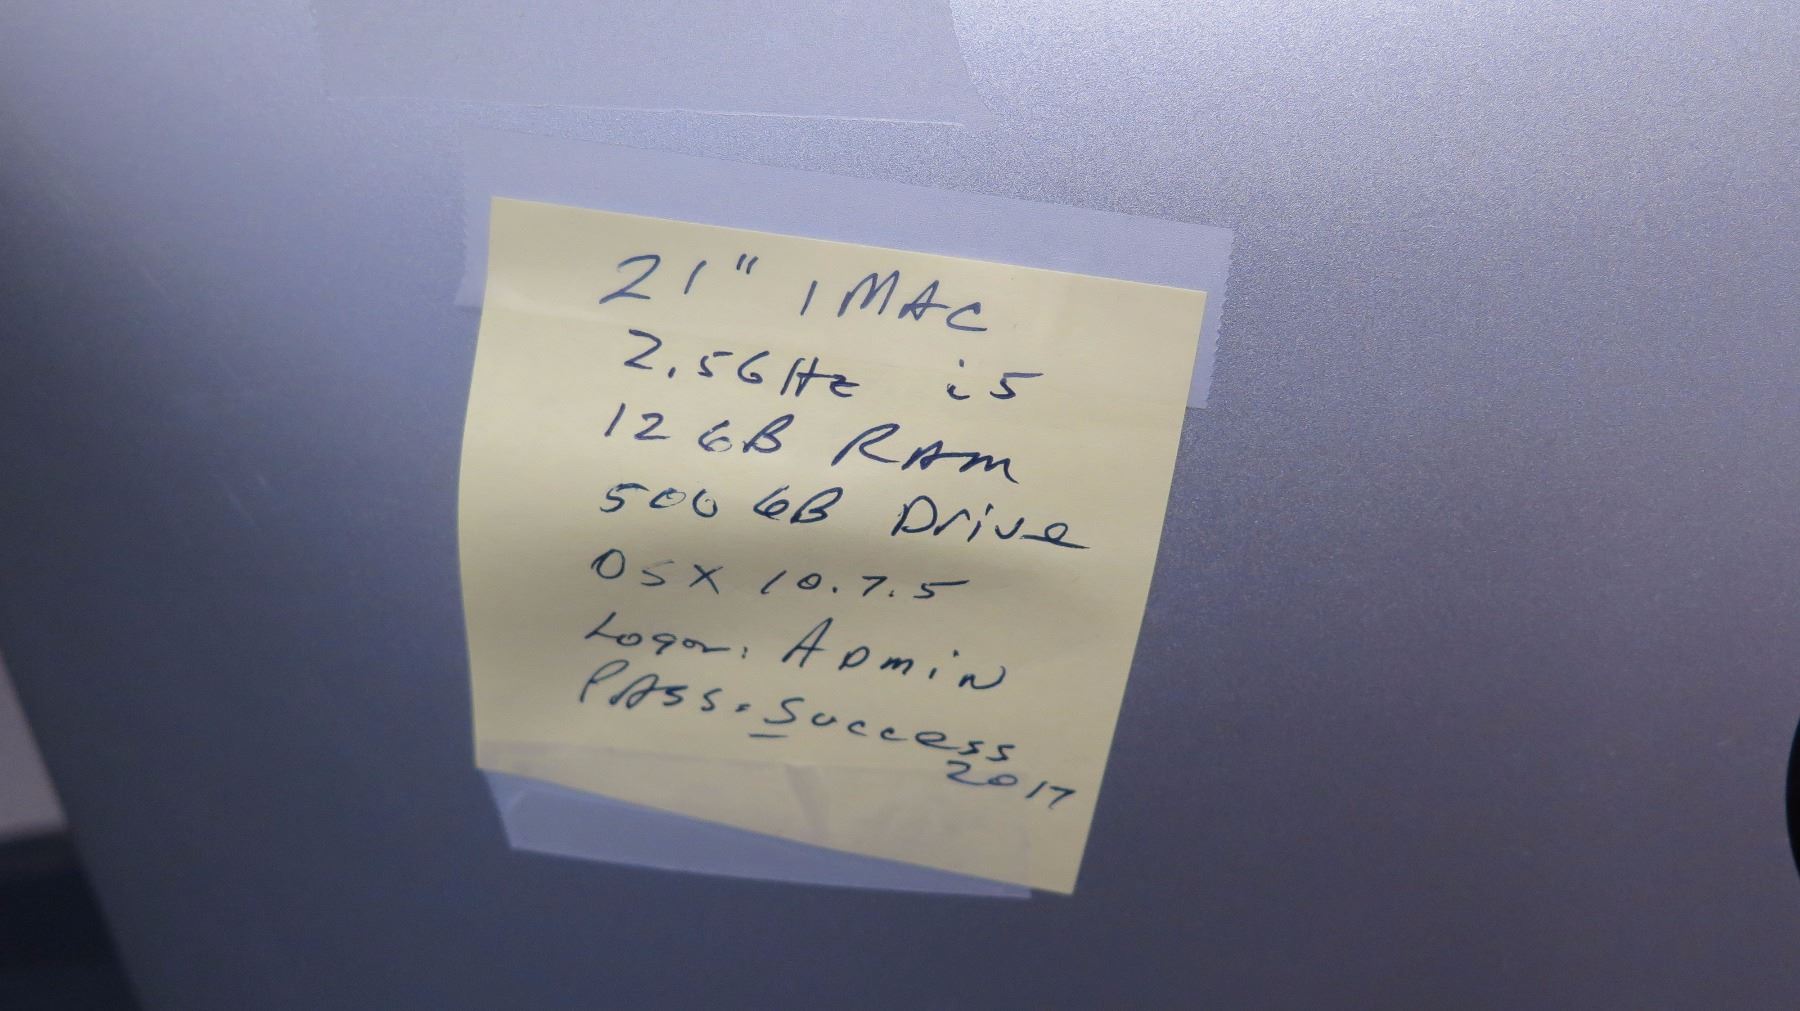 21" iMAC
2.5GHz i5
12 GB RAM
500 GB Drive
OSX 10.7.5
Logon: ADMiN
PASS: Success
2017